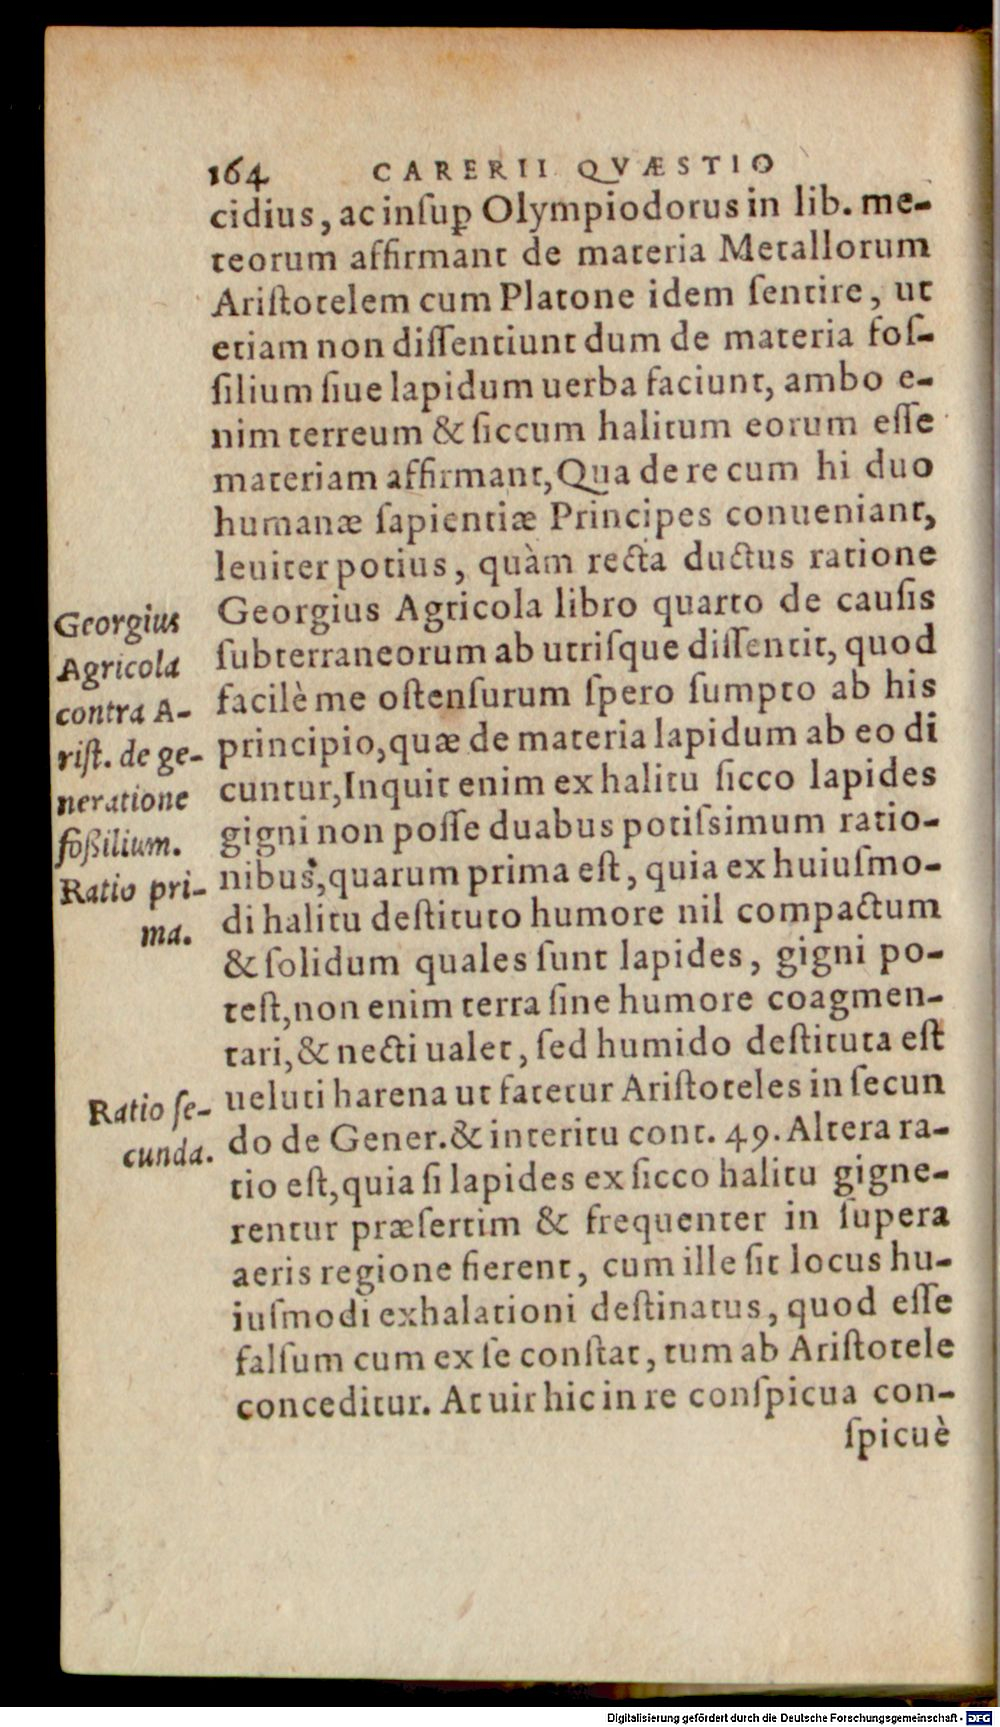 164 CARERII QVÆSTIO
cidius, ac inſuꝑ Olympiodorus in lib. me-
teorum affirmant de materia Metallorum
Ariſtotelem cum Platone idem ſentire, ut
etiam non diſſentiunt dum de materia foſ-
ſilium ſiue lapidum uerba faciunt, ambo e-
nim terreum & ſiccum halitum eorum eſſe
materiam affirmant, Qua de re cum hi duo
humanæ ſapientiæ Principes conueniant,
leuiter potius, quàm recta ductus ratione
Georgius Agricola libro quarto de cauſis
ſubterraneorum ab utriſque diſſentit, quod
facilè me oſtenſurum ſpero ſumpto ab his
principio, quæ de materia lapidum ab eo di
cuntur, Inquit enim ex halitu ſicco lapides
gigni non poſſe duabus potiſsimum ratio-
nibus, quarum prima eſt, quia ex huiuſmo-
di halitu deſtituto humore nil compactum
& ſolidum quales ſunt lapides, gigni po-
teſt, non enim terra ſine humore coagmen-
tari, & necti ualet, ſed humido deſtituta eſt
ueluti harena ut fatetur Ariſtoteles in ſecun
do de Gener. & interitu cont. 49. Altera ra-
tio eſt, quia ſi lapides ex ſicco halitu gigne-
rentur præſertim & frequenter in ſupera
aeris regione fierent, cum ille ſit locus hu-
iuſmodi exhalationi deſtinatus, quod eſſe
falſum cum ex ſe conſtat, tum ab Ariſtotele
conceditur. At uir hic in re conſpicua con-
ſpicuè
Georgius
Agricola
contra A-
riſt. de ge-
neratione
foßilium.
Ratio pri-
ma.
Ratio ſe-
cunda.
Digitalisierung gefördert durch die Deutsche Forschungsgemeinschaft - DFG